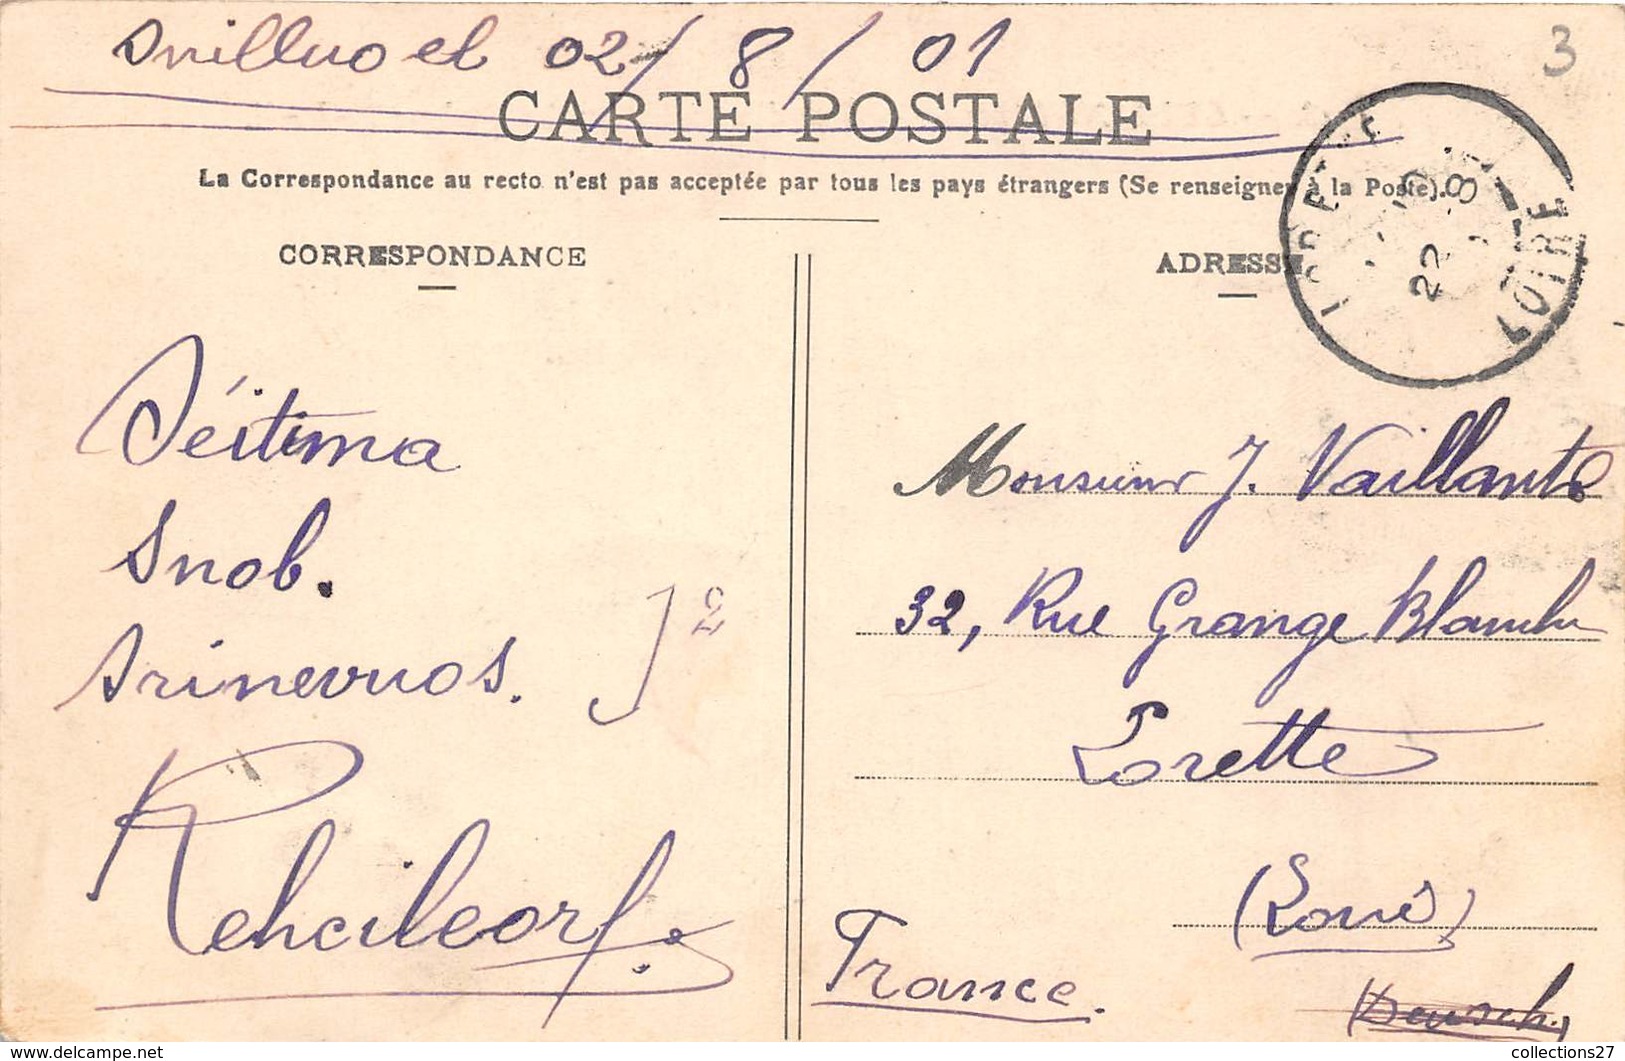 Snilluo el 02/8/01
3
CARTE POSTALE
La Correspondance au recto n'est pas acceptée par tous les pays étrangers (Se renseigner à la Poste).
LORETTE
22 -8
LOIRE
CORRESPONDANCE
ADRESSE
Séitima
Snob.
Srinevuos.
J 2
Rehcileorf.
Monsieur J. Vaillant
32, Rue Grange Blanche
Lorette
(Loire)
France.
collections27